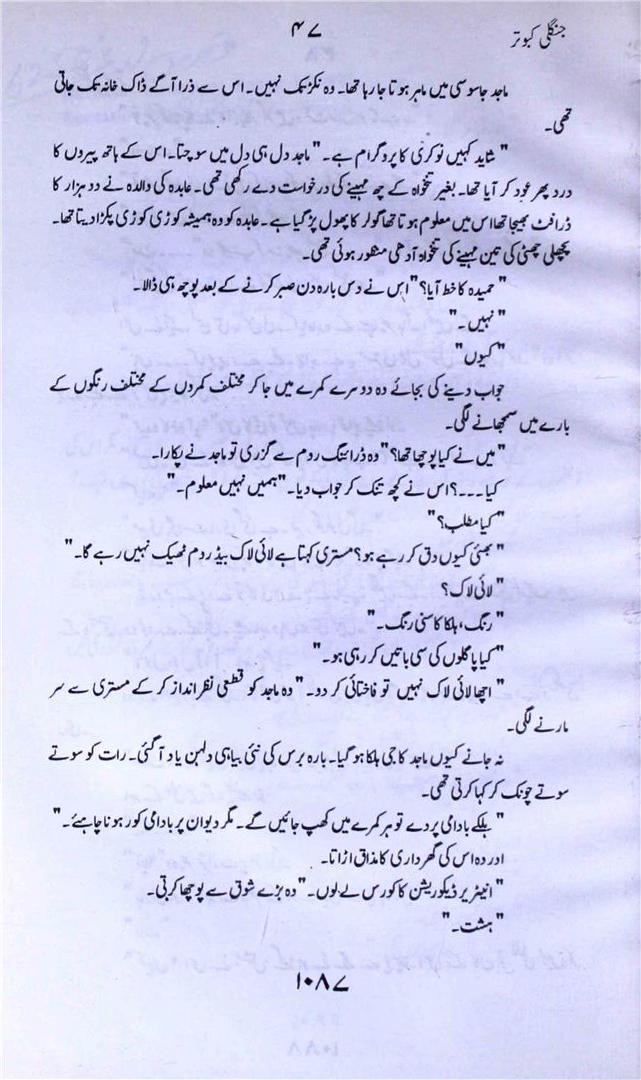 جنگلی کبوتر
۴۷
ماجد جاسوسی میں ماہر ہوتا جا رہا تھا۔ وہ نکڑ تک نہیں۔ اس سے ذرا آگے ڈاک خانہ تک جاتی
تھی۔
"شاید کہیں نوکری کا پروگرام ہے۔" ماجد دل ہی دل میں سوچتا۔ اس کے ہاتھ پیروں کا
درد پھر عود کر آیا تھا۔ بغیر تنخواہ کے چھ مہینے کی درخواست دے رکھی تھی۔ عابدہ کی والدہ نے دو ہزار کا
ڈرافٹ بھیجا تھا اس میں معلوم ہوتا تھا گولر کا پھول پڑ گیا ہے۔ عابدہ کو وہ ہمیشہ کوڑی کوڑی پکڑا دیتا تھا۔
پچھلی چھٹی کی تین مہینے کی تنخواہ آدھی منظور ہوئی تھی۔
"حمیدہ کا خط آیا؟" اس نے دس بارہ دن صبر کرنے کے بعد پوچھ ہی ڈالا۔
"نہیں۔"
"کیوں"
جواب دینے کی بجائے وہ دوسرے کمرے میں جا کر مختلف کمروں کے مختلف رنگوں کے
بارے میں سمجھانے لگی۔
"میں نے کیا پوچھا تھا؟" وہ ڈرائنگ روم سے گزری تو ماجد نے پکارا۔
کیا۔۔۔؟ اس نے کچھ تنک کر جواب دیا۔ "ہمیں نہیں معلوم۔"
"کیا مطلب؟"
"بھئی کیوں دق کر رہے ہو؟ مستری کہتا ہے لائی لاک بیڈ روم ٹھیک نہیں رہے گا۔"
"لائی لاک؟
"رنگ، ہلکا کاسنی رنگ۔"
"کیا پاگلوں کی سی باتیں کر رہی ہو۔"
"اچھا لائی لاک نہیں تو فاختائی کر دو۔" وہ ماجد کو قطعی نظر انداز کر کے مستری سے سر
مارنے لگی۔
نہ جانے کیوں ماجد کا جی ہلکا ہو گیا۔ بارہ برس کی نئی بیاہی دلہن یاد آ گئی۔ رات کو سوتے
سوتے چونک کر کہا کرتی تھی۔
"ہلکے بادامی پردے تو ہر کمرے میں کھپ جائیں گے۔ مگر دیوان پر بادامی کور ہونا چاہئے۔"
اور وہ اس کی گھر داری کا مذاق اڑاتا۔
"انیٹریر ڈیکوریشن کا کورس لے لوں۔" وہ بڑے شوق سے پوچھا کرتی۔
"ہشت۔"
۱۰۸۷